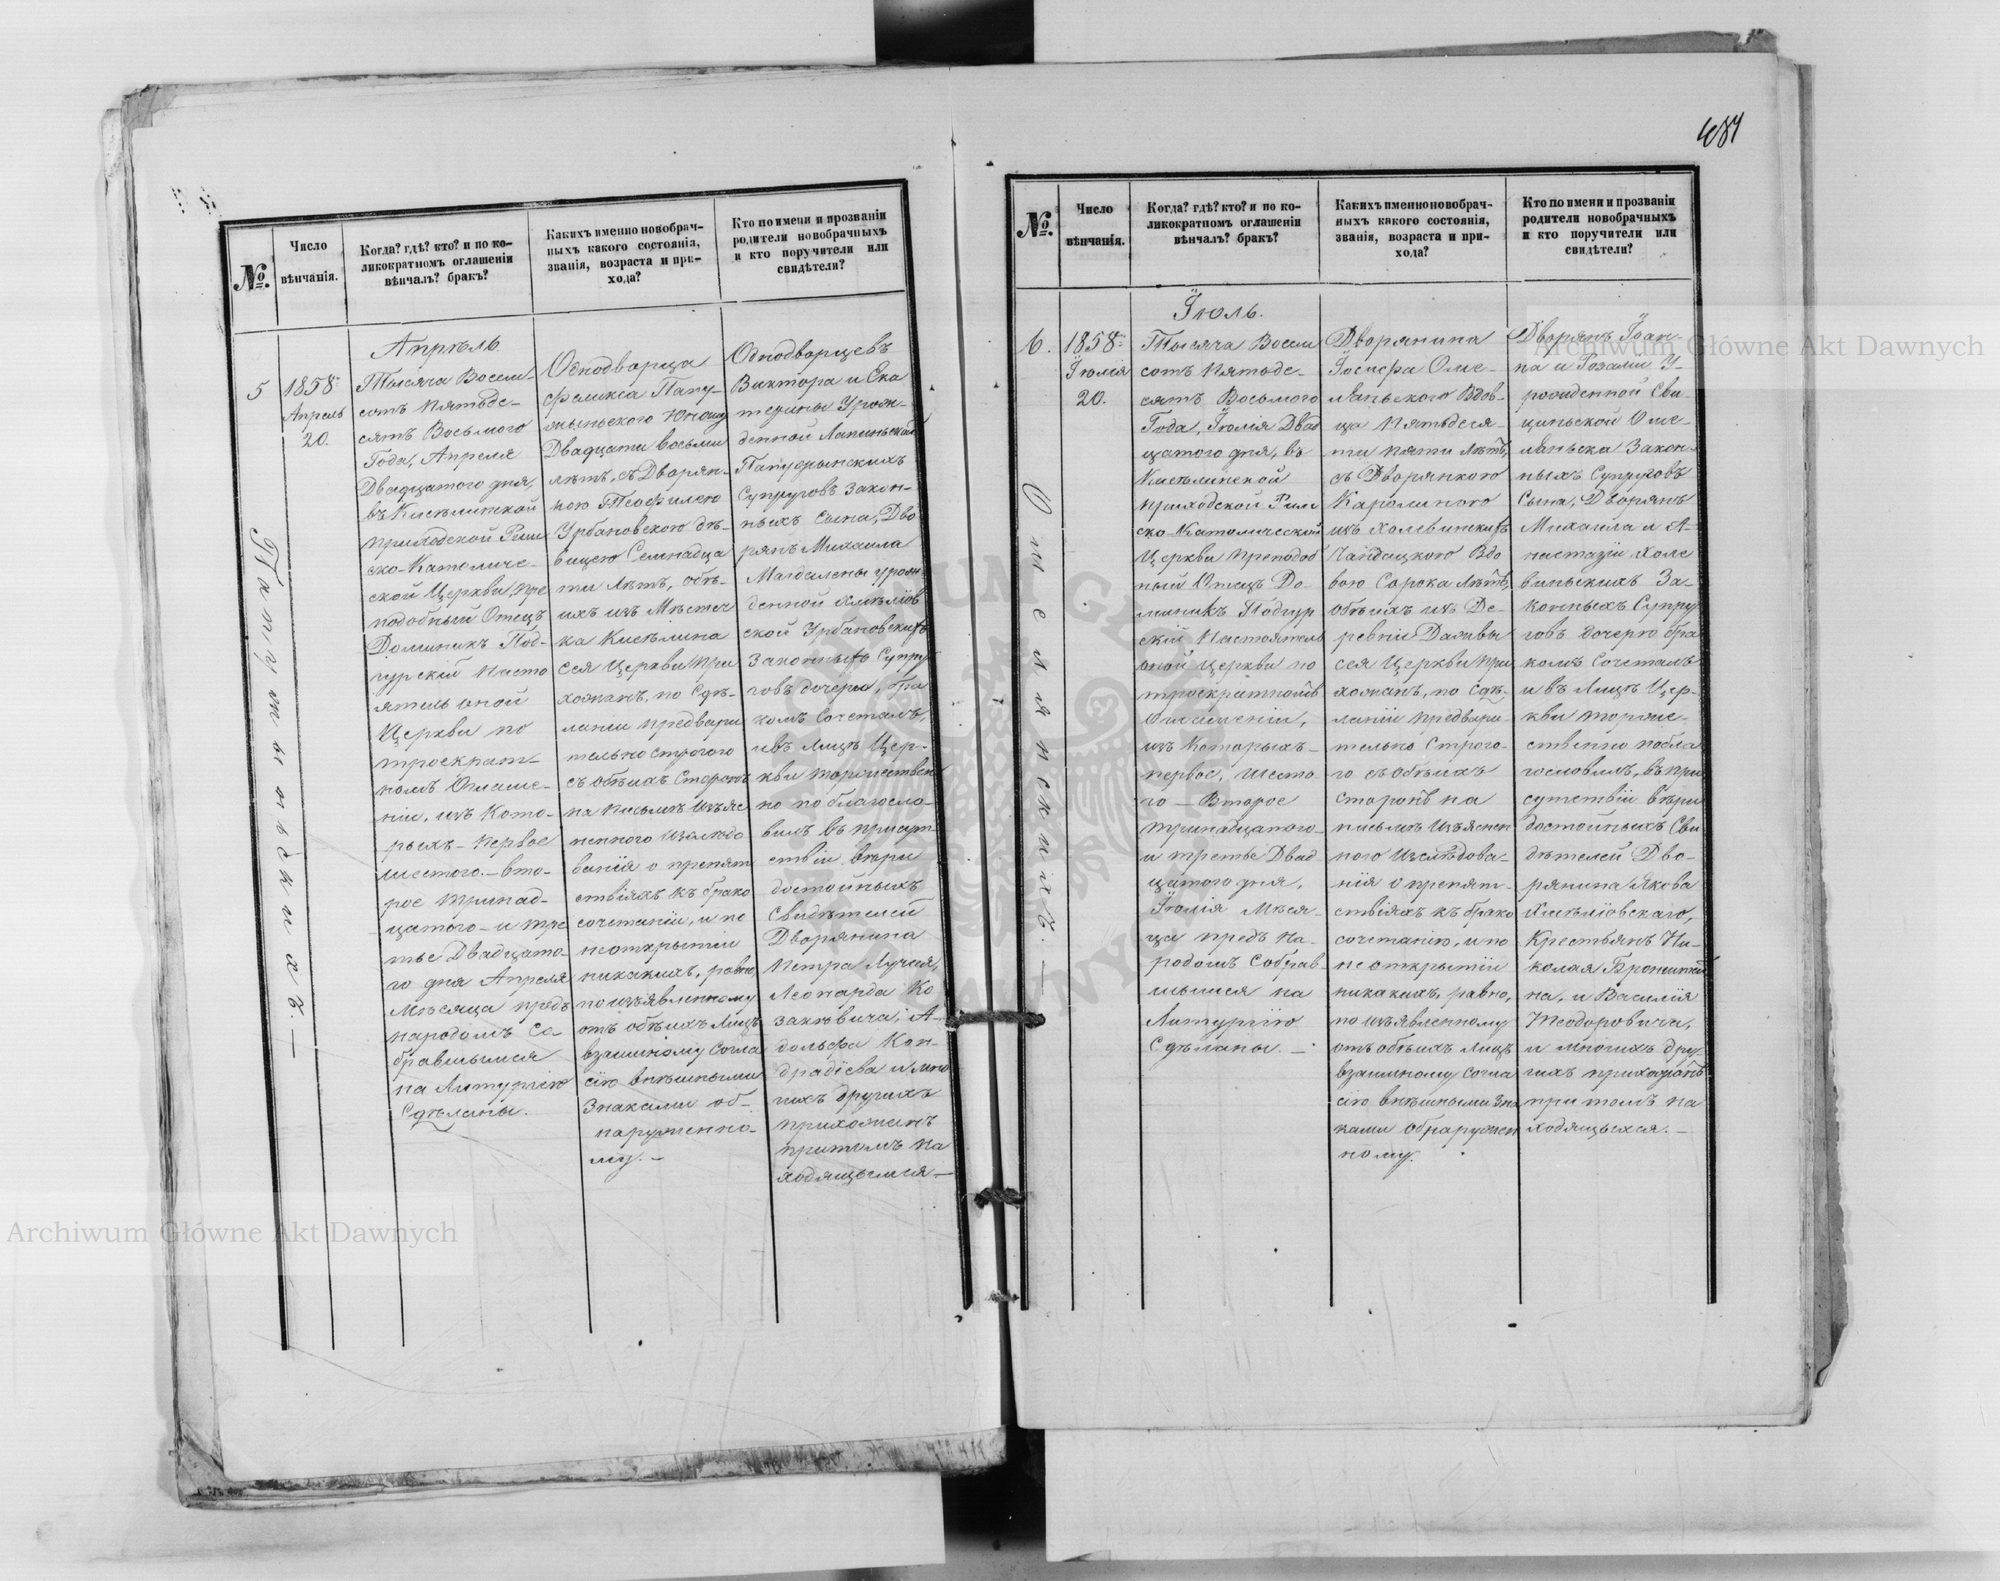 481
№.
Число
вѣнчанія.
Когда? гдѣ? кто? и по ко-
ликократномъ оглашеніи
вѣнчалъ? бракъ?
Какихъ именно новобрач-
ныхъ какого состоянія,
званія, возраста и при-
хода?
Кто по имени и прозваніи
родители новобрачныхъ
и кто поручители или
свидѣтели?
5
1858:
Апрѣль
20.
Апрѣль.
Тысяча Восем-
сотъ пятьде-
сятъ Восьмого
Года, Апреля
Двадцатого дня,
въ Киселинской
приходской Рим
ско-Католиче-
ской Церкви, пре
подобный Отецъ
Доминикъ Под-
гурскій Насто
ятель оной
Церкви по
троекрат-
номъ Оглаше-
ніи, изъ Кото-
рыхъ - первое
шестого - вто-
рое тринад-
цатого - и тре
тье Двадцато-
го дня Апреля
Мѣсяца предъ
народомъ Со-
бравшымся
на Литургію
Сдѣланы.
Однодворца
Феликса Папу-
Двадцати восьми
лѣтъ, съ Дворян-
кою Теофилею
Урбановскою дѣ-
вицею Семнадца
ти лѣтъ, обѣ-
ихъ изъ Мѣстеч
ка Киселина
сея Церкви при
хожанъ, по Сдѣ-
ланіи предвари
тельно строгого
съ обѣихъ Сторонъ
на письмѣ изъяс
ненного изслѣдо
ванія о препят
ствіяхъ къ брако
сочетанію, и по
неоткрытіи
никакихъ, равно,
по изъявленному
отъ обѣихъ Лицъ
взаимному Согла
сію внѣшными
Знаками об-
наруженно-
му. -
Однодворцевъ
Виктора и Ека
терины Урож-
денной
Супруговъ Закон-
ныхъ Сына, Дво
рянъ Михаила
Магдалены урож
денной
ской Урбановскихъ
Законныхъ Супру
говъ дочерью, бра
комъ Сочеталъ,
и въ Лицѣ Цер-
кви торжествен
но поблагосло-
вилъ въ присут
ствіи вѣри
достойныхъ
Свидѣтелей
Дворянина
Петра Лучая,
Леонарда Ко
заковича, А-
дольфа Кон-
драдіева и мно
гихъ другихъ
прихожанъ
притомъ на
ходящымся -
№.
Число
вѣнчанія.
Когда? гдѣ? кто? и по ко-
ликократномъ оглашеніи
вѣнчалъ? бракъ?
Какихъ именно новобрач-
ныхъ какого состоянія,
званія, возраста и при-
хода?
Кто по имени и прозваніи
родители новобрачныхъ
и кто поручители или
свидѣтели?
6.
1858:
Іюлія
20.
Омелянскихъ. -
Іюль.
Тысяча Восем
сотъ пятьде-
сятъ Восьмого
Года, Іюлія Двад
цатого дня, въ
Киселинской
приходской Рим
ско-Католической
Церкви преподоб
ный Отецъ До-
миникъ Подгур
скій Настоятель
оной Церкви по
троекратномъ
Оглашеніи,
изъ Которыхъ -
первое, шесто
го - Второе
тринадцатого -
и третье Двад
цатого дня,
Іюлія Мѣся-
ца предъ На-
родомъ Собрав
шымся на
Литургію
Сдѣланы. -
Дворянина
Іосифа Оме-
лянского Вдов-
ца Пятьдеся-
ти пяти лѣтъ,
съ Дворянкою
Каролиною
изъ Холевинскихъ
Вдо
вою Сорока лѣтъ,
обѣихъ изъ Де-
ревни
сея Церкви при
хожанъ, по Сдѣ-
ланіи предвари-
тельно Строго-
го съ обѣихъ
сторонъ на
письмѣ изъяснен
ного изслѣдова-
нія о препят-
ствіяхъ къ брако
сочетанію, и по
не открытіи
никакихъ, равно,
по изъявленному
отъ обѣихъ Лицъ
взаимному Согла
сію внѣшными Зна
ками обнаружен
ному.
Дворянъ Іоан-
на и Розаліи У-
рожденной Сви-
циньской Оме-
ляньска Закон-
ныхъ Супруговъ
Сына, Дворянъ
Михаила и А-
настазіи Холе
виньскихъ За-
конныхъ Супру
говъ дочерью бра
комъ Сочеталъ
и въ Лицѣ Цер-
кви торже-
ственно побла
гословилъ, въ при
сутствіи вѣри
достойныхъ Сви
дѣтелей Дво-
рянина Якова
Хмѣліовскаго,
Крестьянъ Ни-
колая
на, и Василія
Теодоровича,
и многихъ дру-
гихъ прихожанъ
притомъ на
ходящыхся. -
Archiwum Główne Akt Dawnych
Archiwum Główne Akt Dawnych